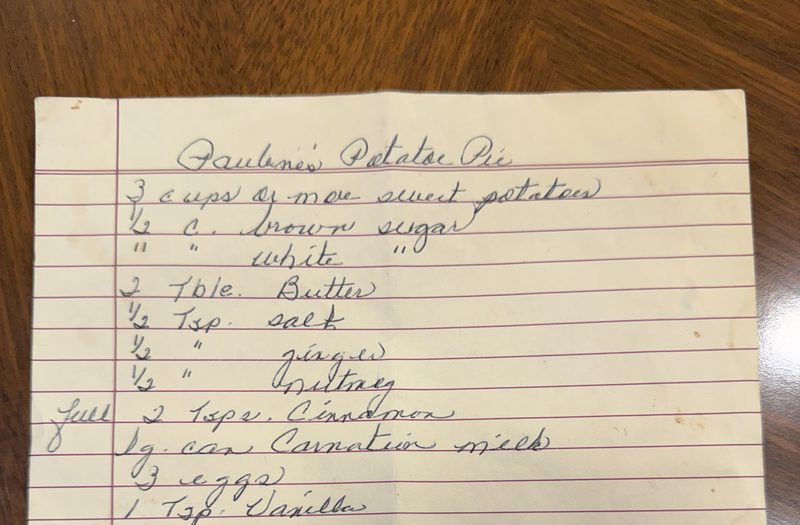 Pauline's Potatoe Pie
3 cups or more sweet potatoes
1/2 c. brown sugar
" " white "
2 Tble. Butter
1/2 Tsp. salt
1/2 " ginger
1/2 " nutmeg
full 2 Tsps. Cinnamon
lg. can Carnation milk
3 eggs
1 Tsp. Vanilla